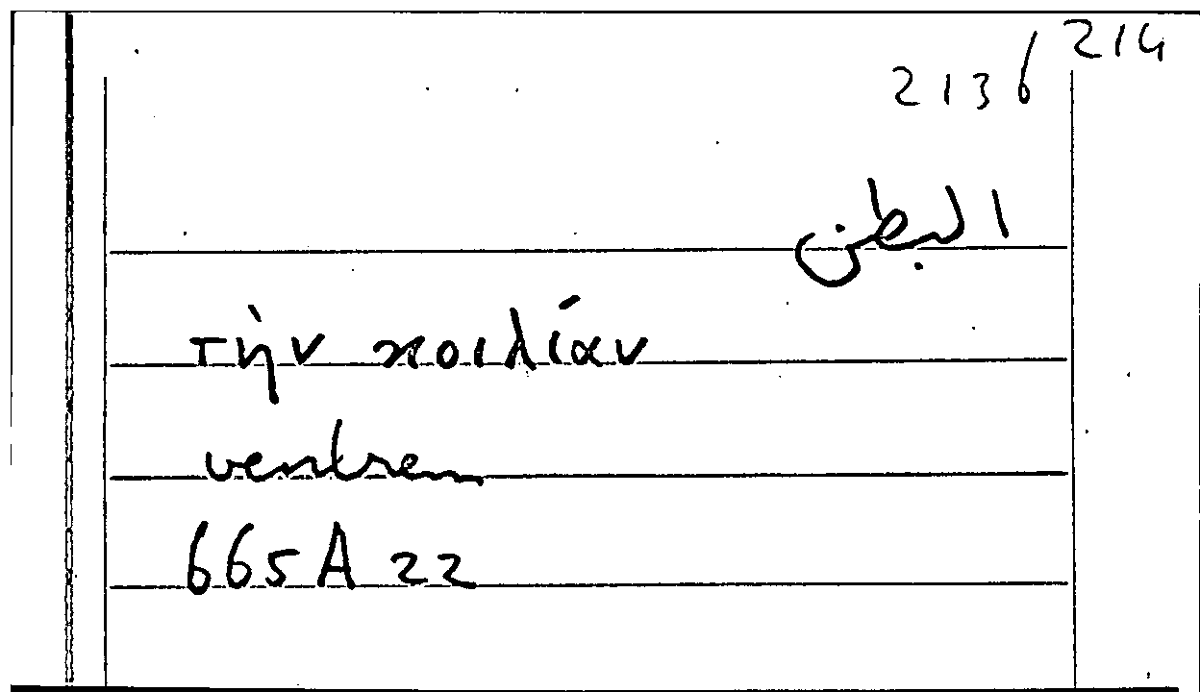 214
2136
البطن
τὴν κοιλίαν
ventrem
665A 22